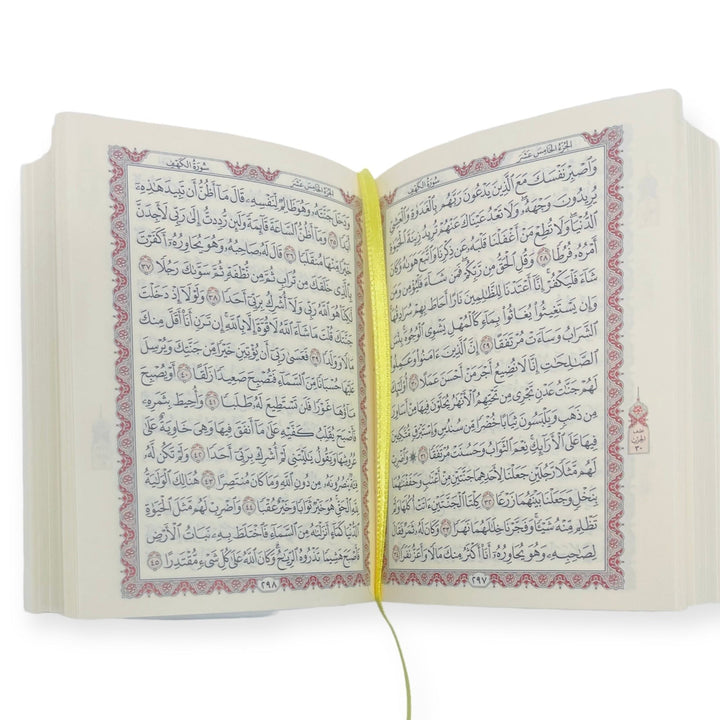 الجزء الخامس عشر
سورة الكهف
وَٱصْبِرْ نَفْسَكَ مَعَ ٱلَّذِينَ يَدْعُونَ رَبَّهُم بِٱلْغَدَوٰةِ وَٱلْعَشِىِّ
يُرِيدُونَ وَجْهَهُۥ وَلَا تَعْدُ عَيْنَاكَ عَنْهُمْ تُرِيدُ زِينَةَ ٱلْحَيَوٰةِ
ٱلدُّنْيَا وَلَا تُطِعْ مَنْ أَغْفَلْنَا قَلْبَهُۥ عَن ذِكْرِنَا وَٱتَّبَعَ هَوَىٰهُ وَكَانَ
أَمْرُهُۥ فُرُطًا ٢٨ وَقُلِ ٱلْحَقُّ مِن رَّبِّكُمْ فَمَن شَآءَ فَلْيُؤْمِن وَمَن
شَآءَ فَلْيَكْفُرْ إِنَّآ أَعْتَدْنَا لِلظَّٰلِمِينَ نَارًا أَحَاطَ بِهِمْ سُرَادِقُهَا
وَإِن يَسْتَغِيثُوا۟ يُغَاثُوا۟ بِمَآءٍ كَٱلْمُهْلِ يَشْوِى ٱلْوُجُوهَ بِئْسَ
ٱلشَّرَابُ وَسَآءَتْ مُرْتَفَقًا ٢٩ إِنَّ ٱلَّذِينَ ءَامَنُوا۟ وَعَمِلُوا۟
ٱلصَّٰلِحَٰتِ إِنَّا لَا نُضِيعُ أَجْرَ مَنْ أَحْسَنَ عَمَلًا ٣٠ أُو۟لَٰٓئِكَ
لَهُمْ جَنَّٰتُ عَدْنٍ تَجْرِى مِن تَحْتِهِمُ ٱلْأَنْهَٰرُ يُحَلَّوْنَ فِيهَا مِنْ أَسَاوِرَ
مِن ذَهَبٍ وَيَلْبَسُونَ ثِيَابًا خُضْرًا مِّن سُندُسٍ وَإِسْتَبْرَقٍ مُّتَّكِـِٔينَ
فِيهَا عَلَى ٱلْأَرَآئِكِ نِعْمَ ٱلثَّوَابُ وَحَسُنَتْ مُرْتَفَقًا ٣١ ۞ وَٱضْرِبْ
لَهُم مَّثَلًا رَّجُلَيْنِ جَعَلْنَا لِأَحَدِهِمَا جَنَّتَيْنِ مِنْ أَعْنَٰبٍ وَحَفَفْنَٰهُمَا
بِنَخْلٍ وَجَعَلْنَا بَيْنَهُمَا زَرْعًا ٣٢ كِلْتَا ٱلْجَنَّتَيْنِ ءَاتَتْ أُكُلَهَا وَلَمْ
تَظْلِم مِّنْهُ شَيْـًٔا وَفَجَّرْنَا خِلَٰلَهُمَا نَهَرًا ٣٣ وَكَانَ لَهُۥ ثَمَرٌ فَقَالَ
لِصَٰحِبِهِۦ وَهُوَ يُحَاوِرُهُۥٓ أَنَا۠ أَكْثَرُ مِنكَ مَالًا وَأَعَزُّ نَفَرًا ٣٤
٢٩٧
نصف
الحزب
٣٠
الجزء الخامس عشر
سورة الكهف
وَدَخَلَ جَنَّتَهُۥ وَهُوَ ظَالِمٌ لِّنَفْسِهِۦ قَالَ مَآ أَظُنُّ أَن تَبِيدَ هَٰذِهِۦٓ
أَبَدًا ٣٥ وَمَآ أَظُنُّ ٱلسَّاعَةَ قَآئِمَةً وَلَئِن رُّدِدتُّ إِلَىٰ رَبِّى لَأَجِدَنَّ
خَيْرًا مِّنْهَا مُنقَلَبًا ٣٦ قَالَ لَهُۥ صَاحِبُهُۥ وَهُوَ يُحَاوِرُهُۥٓ أَكَفَرْتَ
بِٱلَّذِى خَلَقَكَ مِن تُرَابٍ ثُمَّ مِن نُّطْفَةٍ ثُمَّ سَوَّىٰكَ رَجُلًا ٣٧
لَّٰكِنَّا۠ هُوَ ٱللَّهُ رَبِّى وَلَآ أُشْرِكُ بِرَبِّىٓ أَحَدًا ٣٨ وَلَوْلَآ إِذْ دَخَلْتَ
جَنَّتَكَ قُلْتَ مَا شَآءَ ٱللَّهُ لَا قُوَّةَ إِلَّا بِٱللَّهِ إِن تَرَنِ أَنَا۠ أَقَلَّ مِنكَ
مَالًا وَوَلَدًا ٣٩ فَعَسَىٰ رَبِّىٓ أَن يُؤْتِيَنِ خَيْرًا مِّن جَنَّتِكَ وَيُرْسِلَ
عَلَيْهَا حُسْبَانًا مِّنَ ٱلسَّمَآءِ فَتُصْبِحَ صَعِيدًا زَلَقًا ٤٠ أَوْ يُصْبِحَ
مَآؤُهَا غَوْرًا فَلَن تَسْتَطِيعَ لَهُۥ طَلَبًا ٤١ وَأُحِيطَ بِثَمَرِهِۦ
فَأَصْبَحَ يُقَلِّبُ كَفَّيْهِ عَلَىٰ مَآ أَنفَقَ فِيهَا وَهِىَ خَاوِيَةٌ عَلَىٰ
عُرُوشِهَا وَيَقُولُ يَٰلَيْتَنِى لَمْ أُشْرِكْ بِرَبِّىٓ أَحَدًا ٤٢ وَلَمْ تَكُن لَّهُۥ
فِئَةٌ يَنصُرُونَهُۥ مِن دُونِ ٱللَّهِ وَمَا كَانَ مُنتَصِرًا ٤٣ هُنَالِكَ ٱلْوَلَٰيَةُ
لِلَّهِ ٱلْحَقِّ هُوَ خَيْرٌ ثَوَابًا وَخَيْرٌ عُقْبًا ٤٤ وَٱضْرِبْ لَهُم مَّثَلَ ٱلْحَيَوٰةِ
ٱلدُّنْيَا كَمَآءٍ أَنزَلْنَٰهُ مِنَ ٱلسَّمَآءِ فَٱخْتَلَطَ بِهِۦ نَبَاتُ ٱلْأَرْضِ
فَأَصْبَحَ هَشِيمًا تَذْرُوهُ ٱلرِّيَٰحُ وَكَانَ ٱللَّهُ عَلَىٰ كُلِّ شَىْءٍ مُّقْتَدِرًا ٤٥
٢٩٨